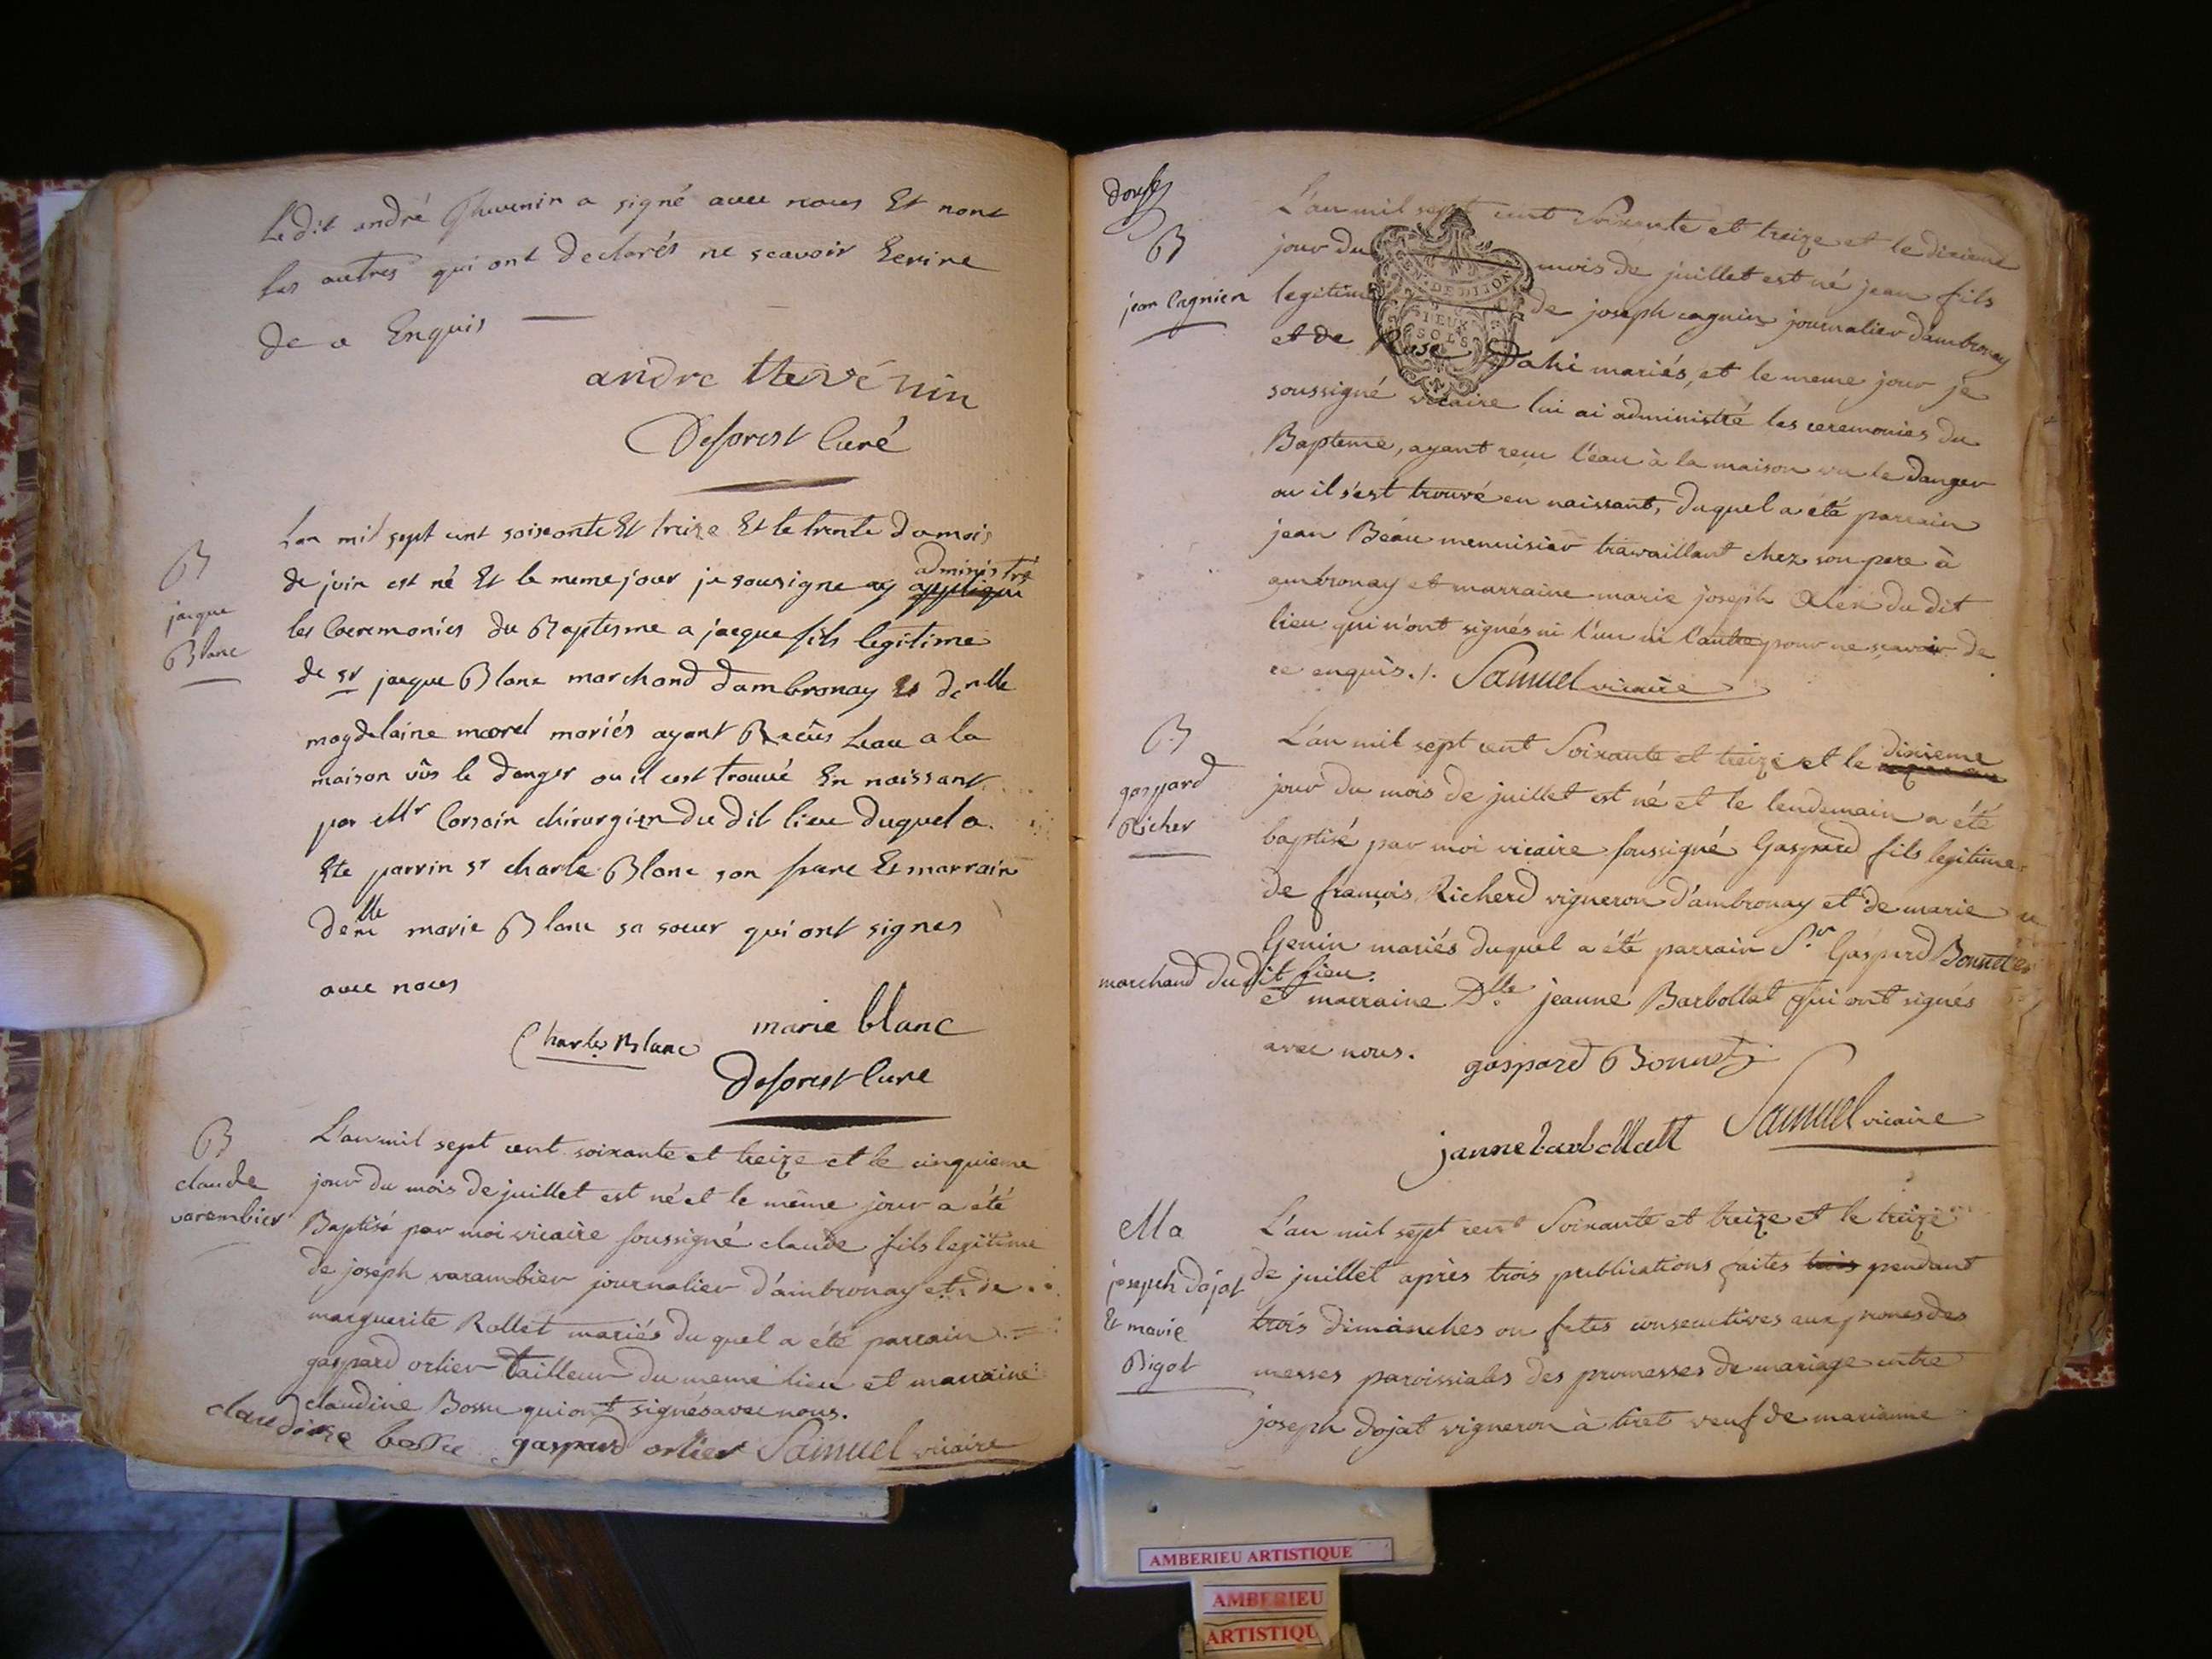 Ledit andré Thevenin a signé avec nous Et non
les autres qui ont declarés ne scavoir Ecrire
de a Enquis
andre thevénin
Deforest Curé
B
jacque
Blanc
Lan mil sept cent soiseonte Et treize Et le trente du mois
de juin est né Et le meme jour je sousigne ay administré
les Coeremonies du Baptesme a jacque fils legitime
de sr jacque Blanc marchand dambronay Et demlle
magdelaine morel mariés ayant Recûs Leau a la
maison vûs le danger ou il cest trouvé En naissant
par Mr Corsain chirurgien du dit lieu duquel a
Ete parrin sr charle Blanc son frere Et marrain
demlle marie Blanc sa soeur qui ont signes
avec nous
Charles Blanc marie blanc
deforest Cure
B
claude
varambier
L'an mil sept cent soixante et treize et le cinquieme
jour du mois de juillet est né et le même jour a été
Baptisé par moi vicaire soussigné claude fils legitime
de joseph varambier journalier d'ambronay et de
marguerite Rollet mariés duquel a été parrain
gaspard orlier tailleur du meme lieu et marraine
claudine Bossu qui ont signés avec nous.
claudine bossu gaspard orlier Samuel vicaire
douze
B
jean Cagnien
L'an mil sept cent Soixante et treize et le dixieme
jour du mois de juillet est né jean fils
legitime de joseph cagnin journalier d'ambronay
et de Rose Dahi mariés, et le meme jour je
soussigné vicaire lui ai administré les ceremonies du
Bapteme, ayant reçu l'eau à la maison vu le danger
ou il s'est trouvé en naissant, duquel a été parrain
jean Béau menuisier travaillant chez son pere à
ambronay et marraine marie joseph du dit
lieu qui n'ont signés ni l'un ni l'autre pour ne sçavoir de
ce enquis ./. Samuel vicaire
GEN. DE DIJON
DEUX
SOLS
B
gaspard
Richer
L'an mil sept cent Soixante et treize et le dixieme
jour du mois de juillet est né et le lendemain a été
baptisé par moi vicaire soussigné Gaspard fils legitime
de françois Richerd vigneron d'ambronay et de marie
Genin mariés duquel a été parrain Sr. Gaspard Bonnet
marchand du dit lieu.
et marraine Dlle. jeanne Barbollat qui ont signés
avec nous. gaspard Bonnet
janne barbollatt Samuel vicaire
Ma
joseph dojat
Et marie
Bigot
L'an mil sept cent Soixante et treize et le treize
de juillet après trois publications faites trois pendant
trois dimanches ou fetes consecutives aux prones des
messes paroissiales des promesses de mariage entre
joseph dojat vigneron à tiret veuf de marianne
AMBERIEU ARTISTIQUE
AMBERIEU
ARTISTIQU